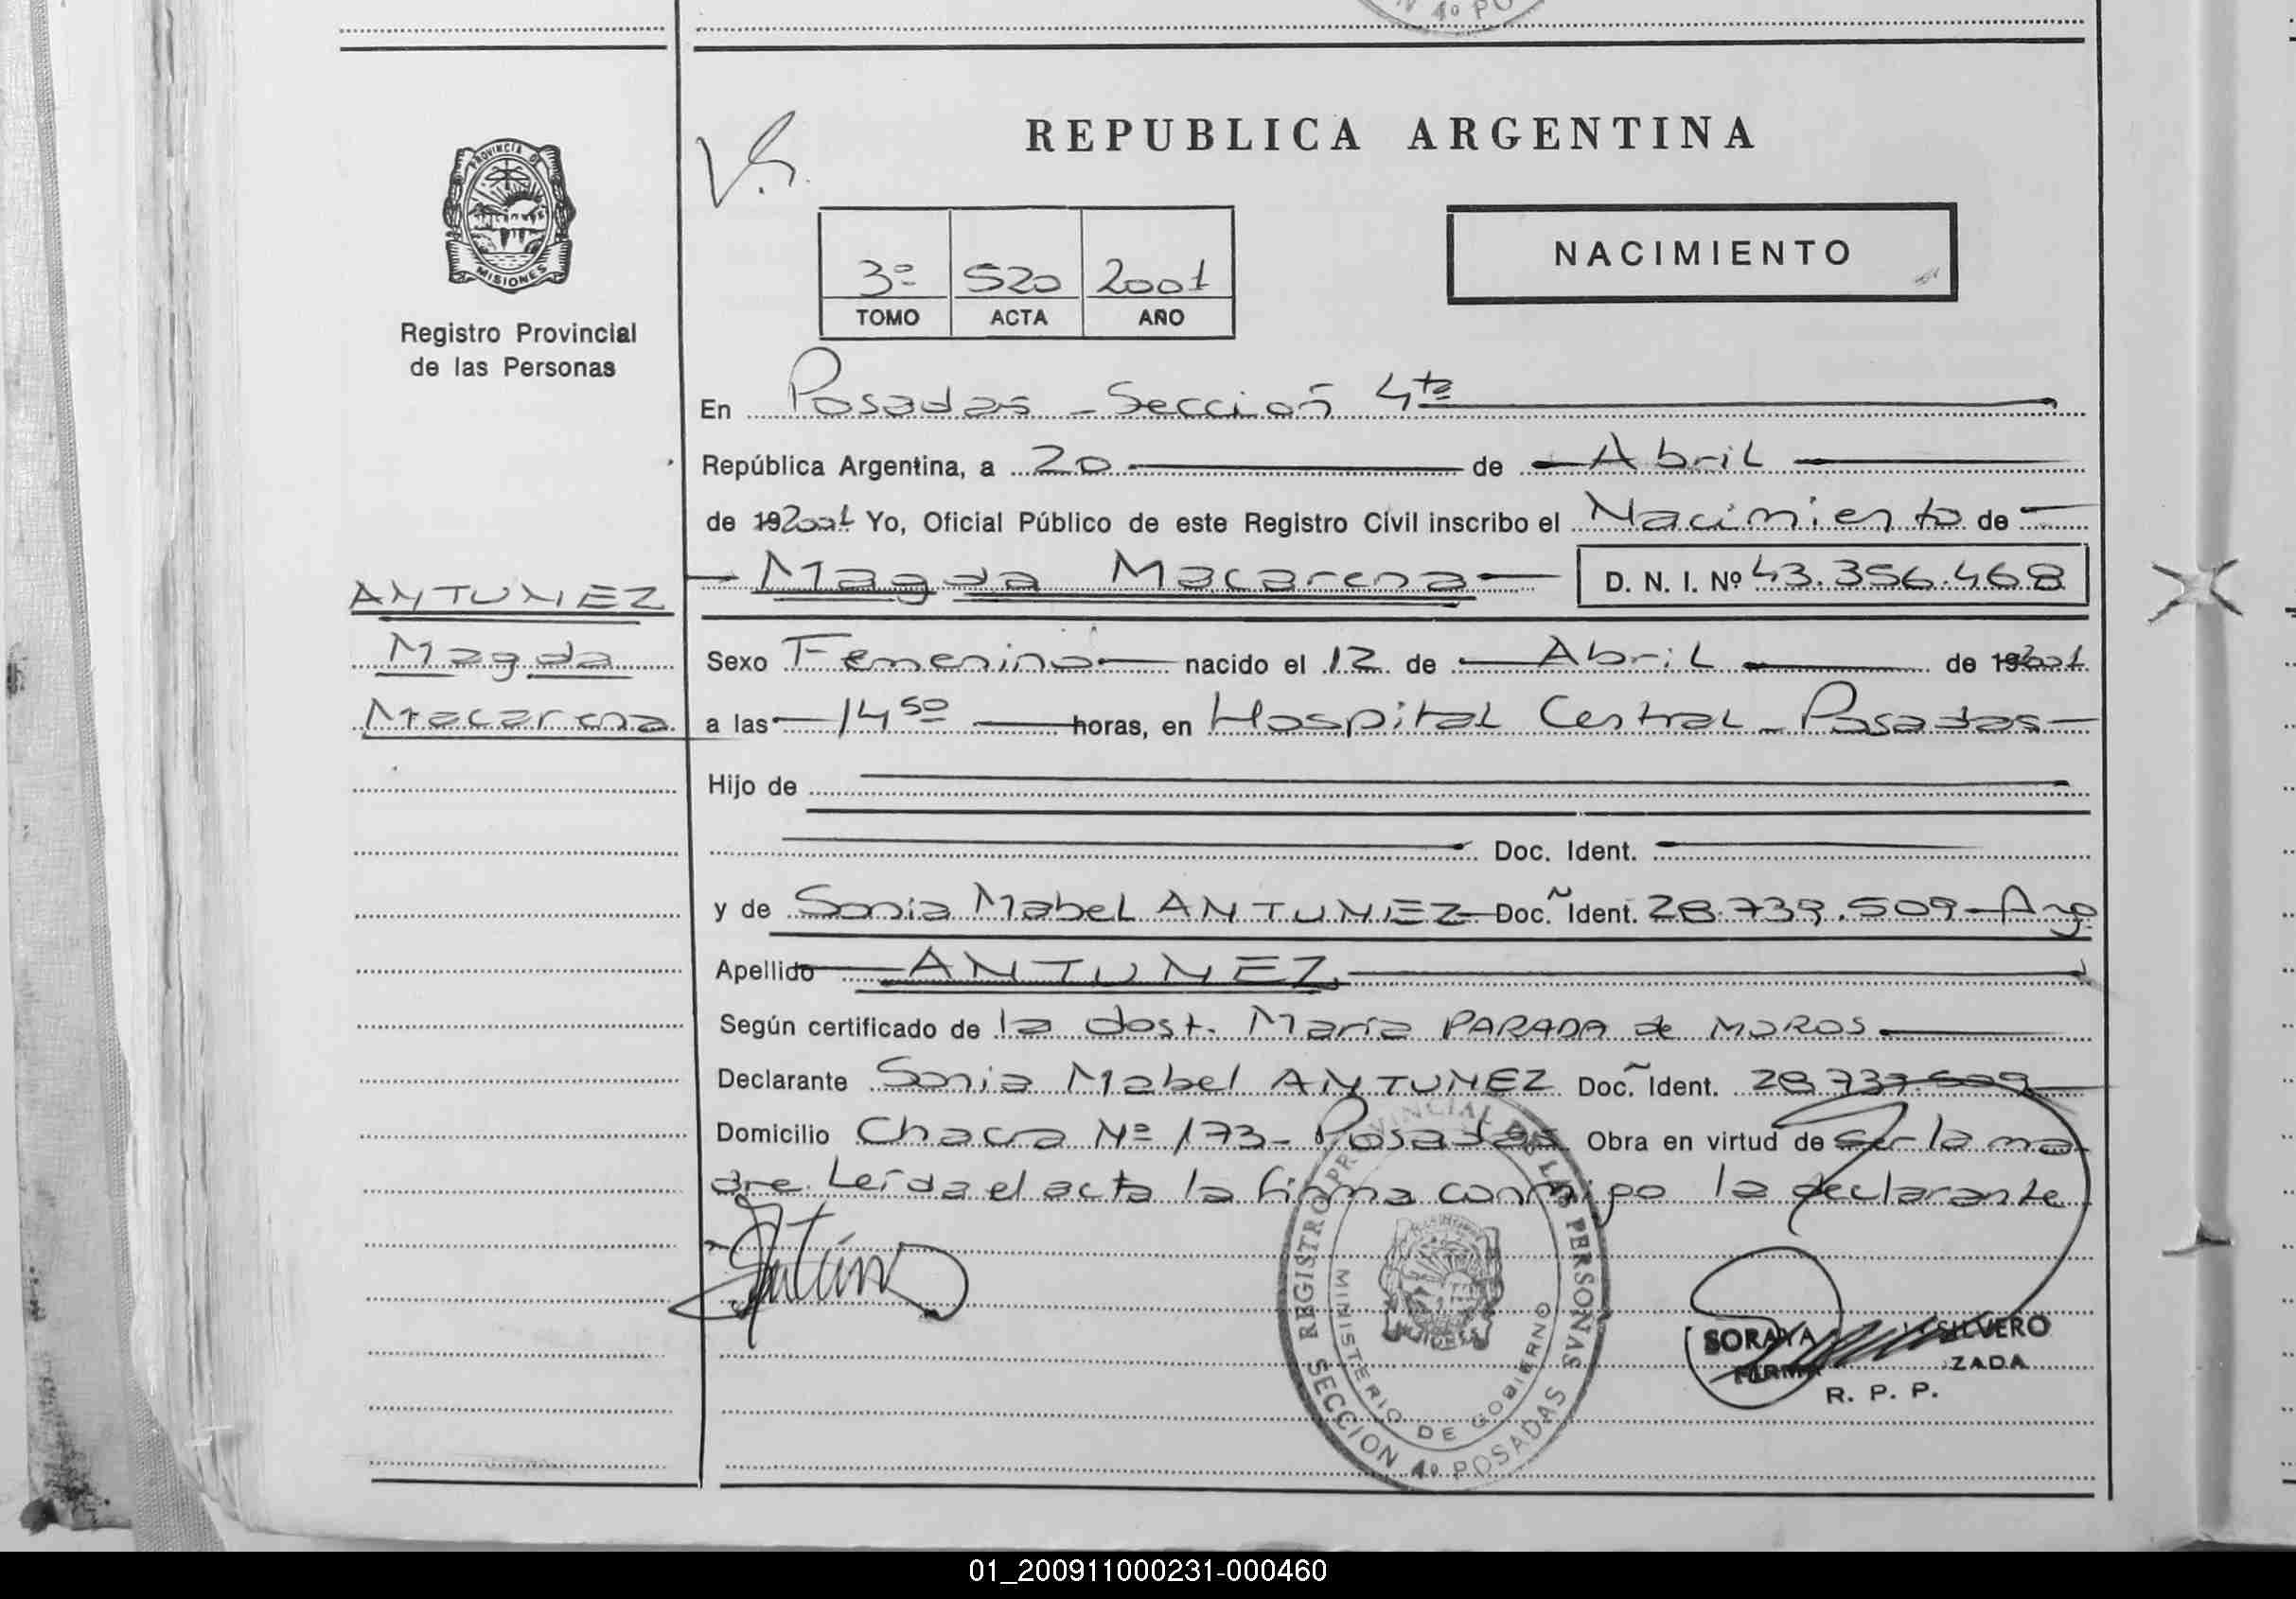 N 4º PO
V.S.
REPUBLICA ARGENTINA
PROVINCIA DE
MISIONES
NACIMIENTO
3º 520 2001
TOMO ACTA AÑO
Registro Provincial
de las Personas
En Posadas - Sección 4ta
República Argentina, a 20 de Abril
de 192001 Yo, Oficial Público de este Registro Civil inscribo el Nacimiento de
Magda Macarena D. N. I. Nº 43.356.468
ANTUNEZ
Magda
Macarena
Sexo Femenino nacido el 12 de Abril de 192001
a las 14 50 horas, en Hospital Central - Posadas
Hijo de
Doc. Ident.
y de Sonia Mabel ANTUNEZ Doc. Ident. 28.739.509 - Arg.
Apellido ANTUNEZ
Según certificado de la dost. María PARADA de MOROS
Declarante Sonia Mabel ANTUNEZ Doc. Ident.
Domicilio Chacra Nº 173 - Posadas Obra en virtud de ser la ma
dre. Leída el acta la firma conmigo la declarante
REGISTRO PROVINCIAL DE LAS PERSONAS
MINISTERIO DE GOBIERNO
SECCION 4º POSADAS
SORAYA SILVERO
ZADA
R. P. P.
01_200911000231-000460